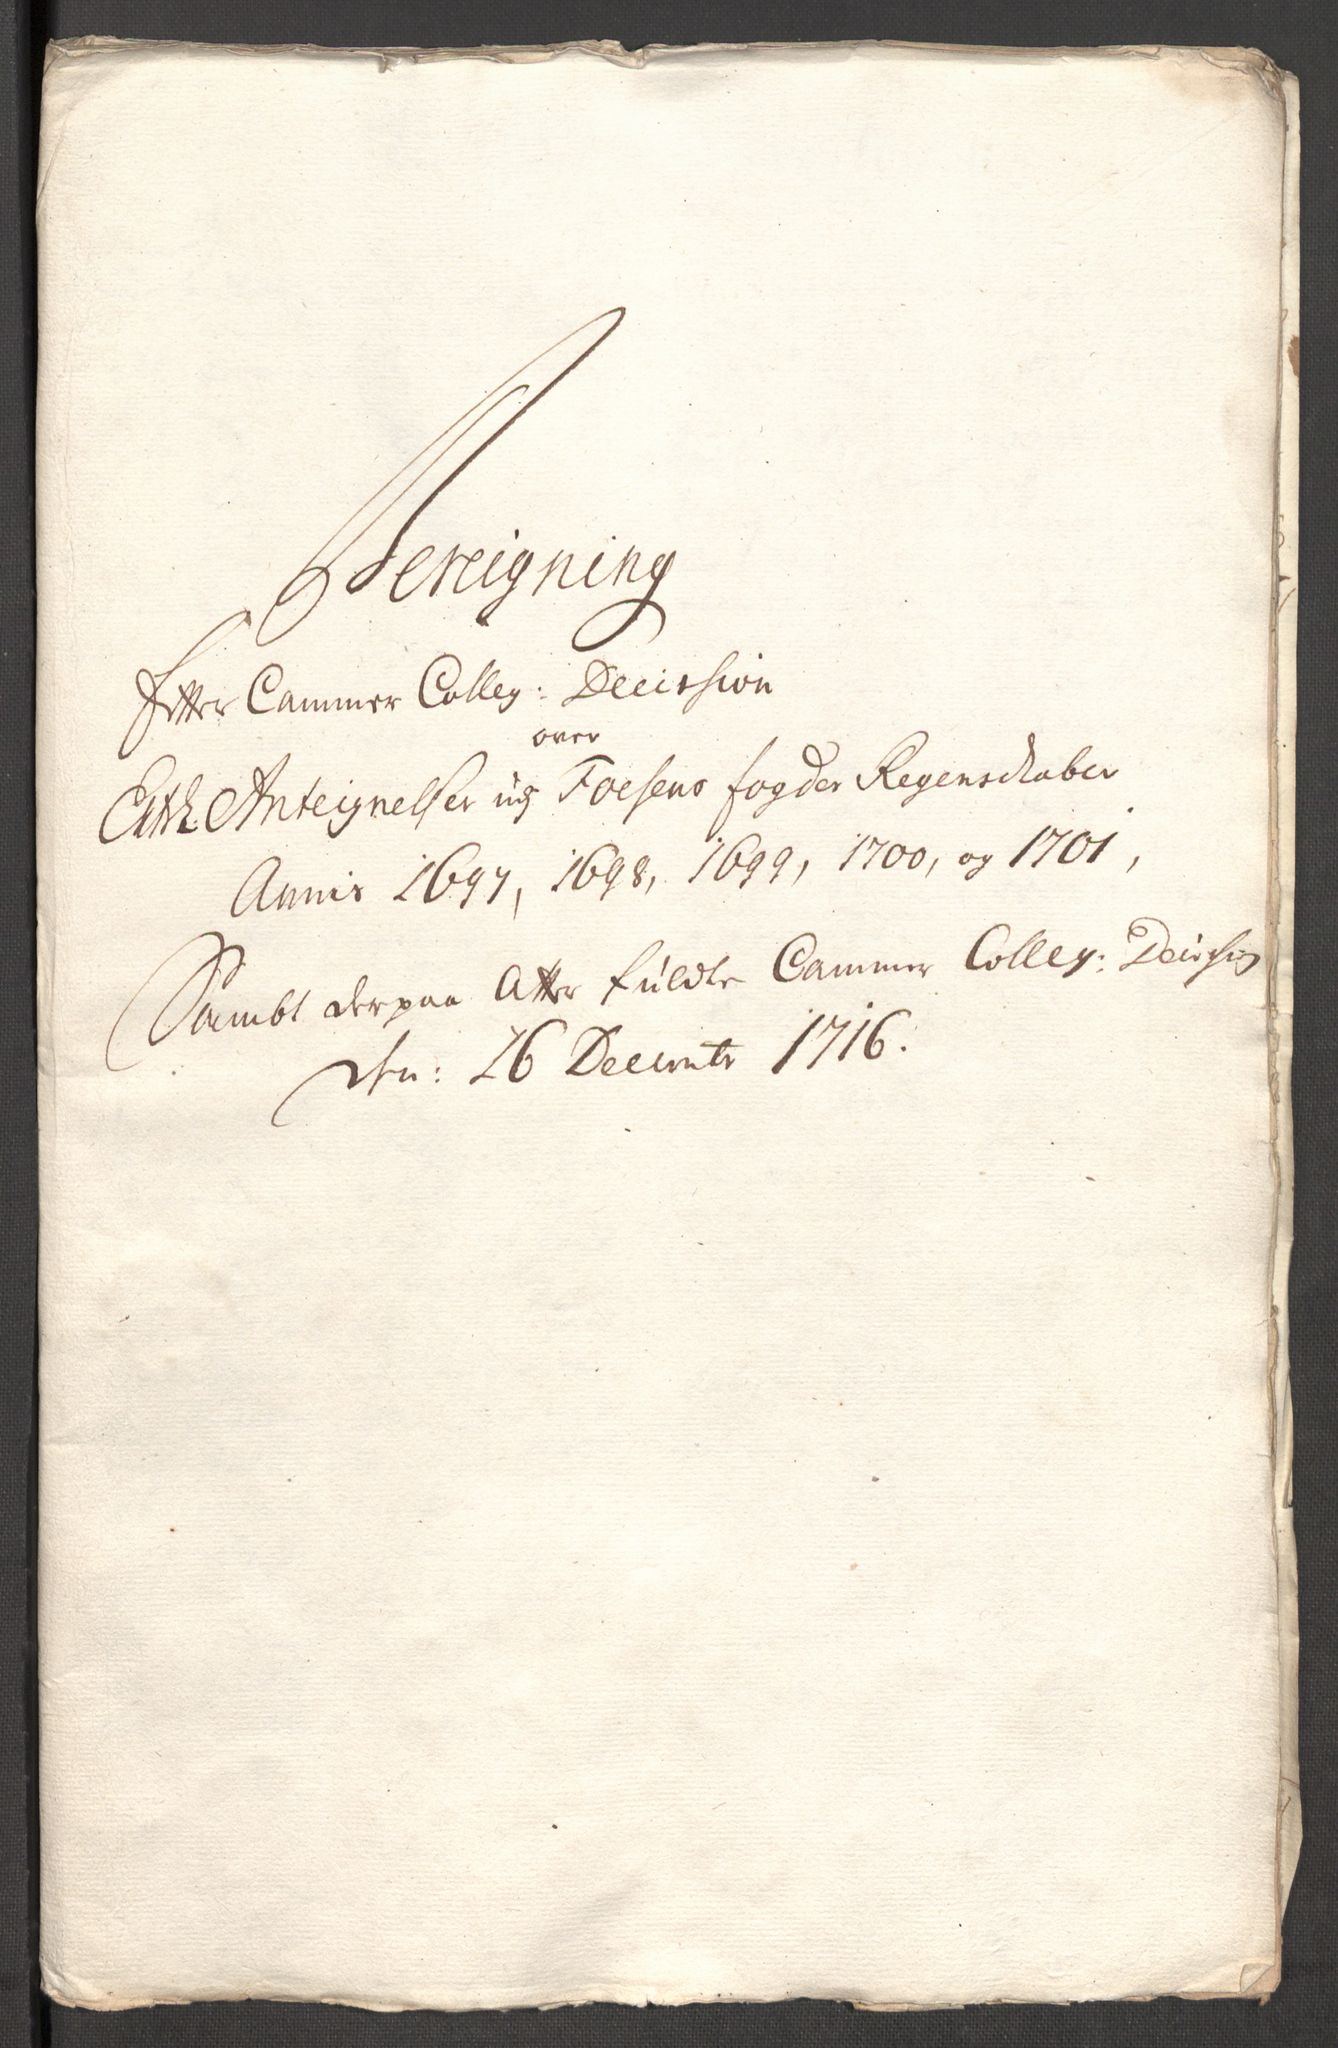 Bereigning
Efter Cammer Colleg: Decission
over
Anteignelser udj Foesens fogderRegenschaber
Annis 1697, 1698, 1699, 1700, og 1701,
Sambt derpaa Atter fuldte Cammer Colleg: Decission
den: 26 Decembr 1716.